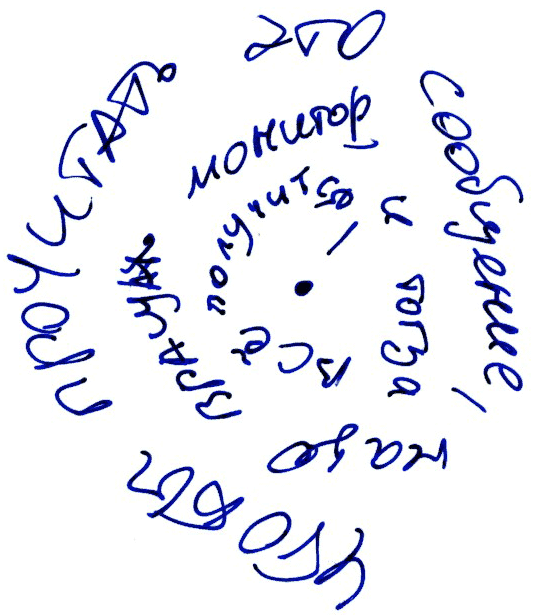 ЧТО БЫ ПРОЧИТАТЬ это сообщение, надо ВРАЩАТЬ монитор и тогда всё получится!